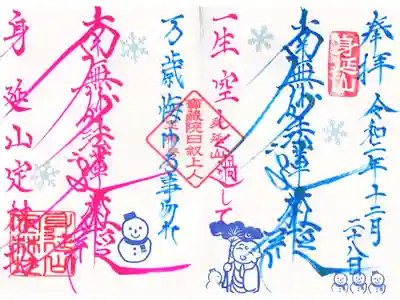 奉拝 令和二年十二月
二十八日
身延山
南無妙法蓮華経
一生空しく過して
身延山
寶蔵院日叙上人
万歳悔ゆる事勿れ
南無妙法蓮華経
身延山定林坊
身延山